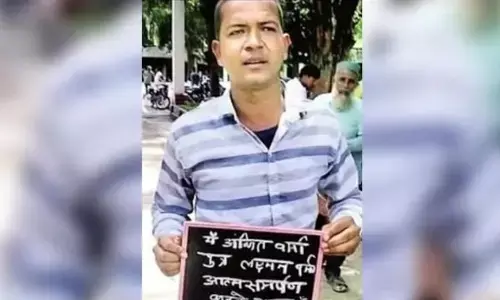 मैं अंकित वर्मा
पुत्र लक्ष्मन वर्मा
आत्मसमर्पण
करने